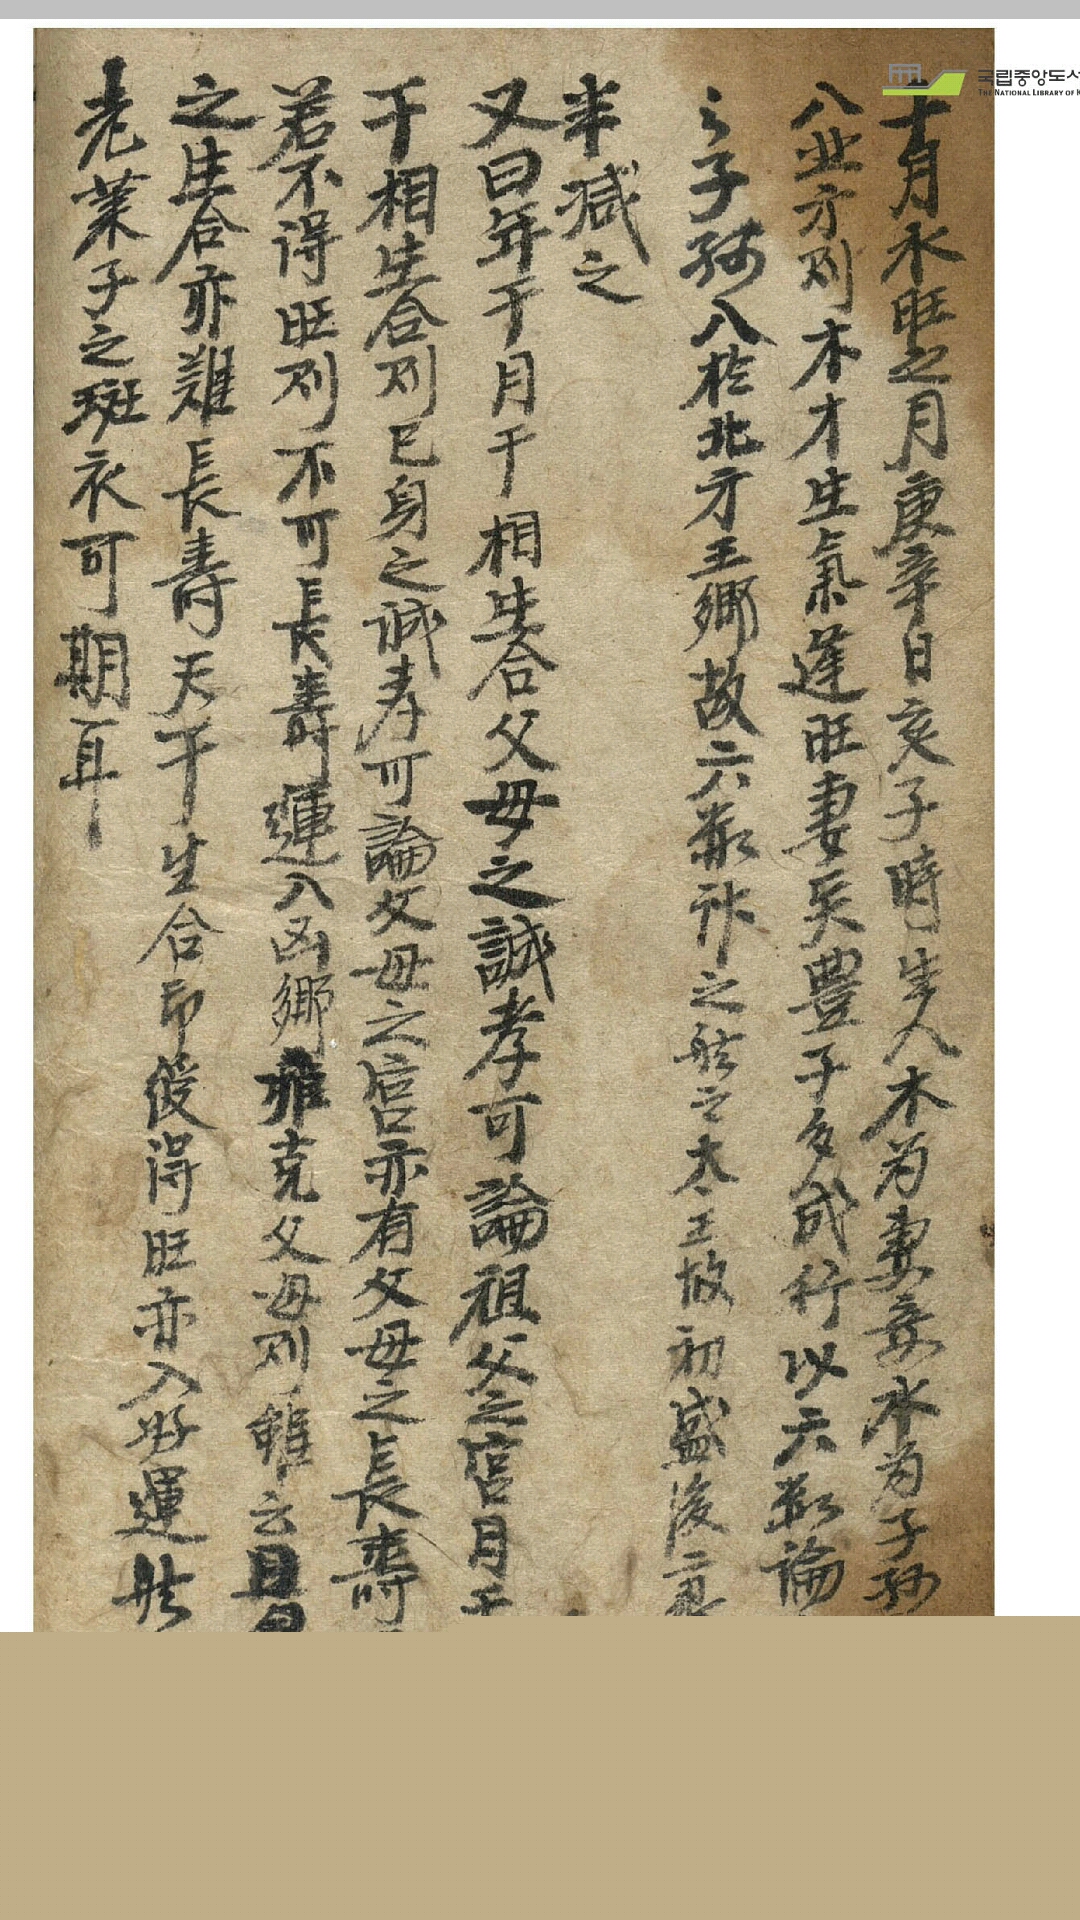 국립중앙도서
THE NATIONAL LIBRARY OF K
十月水旺之月庚辛日亥子時生人木为妻妾水为子孫
八北方則木才生氣逢旺妻矣豊子多成行以六親論
之子孫八於北方王鄉故六親祚之然之太王故初盛後二
半减之
又曰年干月干相生合父母之誠孝可論祖父之官月干
干相生合則已身之誠孝可論父母之官亦有父母之長壽
若不得旺則不可長壽運入凶鄉雖克父母則雖云
之生合亦難長壽天干生合印後得旺亦入好運然
老萊子之斑衣可期耳